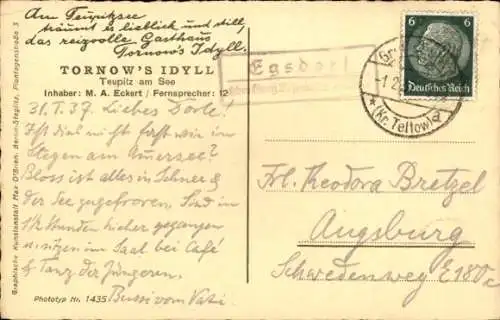 Am Teupitzsee
träumt es lieblich und still,
das reizvolle Gasthaus
Tornow's Idyll.
TORNOW'S IDYLL
Teupitz am See
Inhaber: M. A. Eckert / Fernsprecher: 12
31.I.37. Liebes Dorle!
Ist das nicht fast wie im
Stegen am Ammersee?
Bloss ist alles in Schnee &
der See gefroren. Sind in
1½ Stunden hieher gegangen
u. sitzen im Saal bei Café
& Tanz der Jüngeren.
Bussi vom Vati.
Phototyp Nr. 1435
Graphische Kunstanstalt Max O'Brien, Berlin-Steglitz, Plantagenstraße 3
Egsdorf
6 6
Deutsches Reich
(Kr. Teltow)
Frl. Theodora Bretzel
Augsburg
Schwedenweg E 180